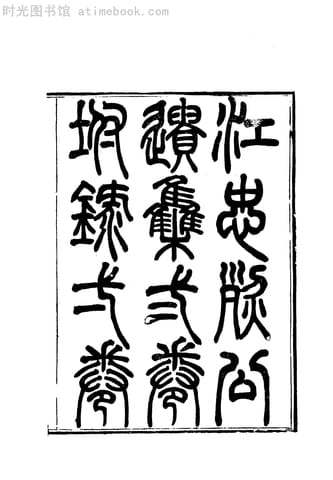 时光图书馆 atimebook.com
江忠烈公
遺集弍卷
坿錄弌卷